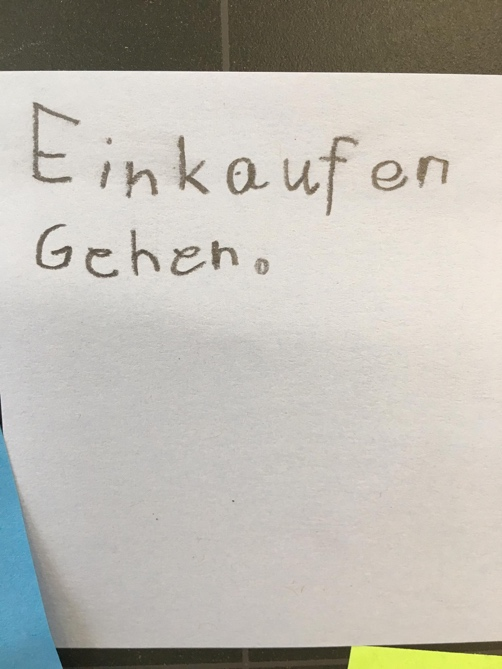 Einkaufen
Gehen.